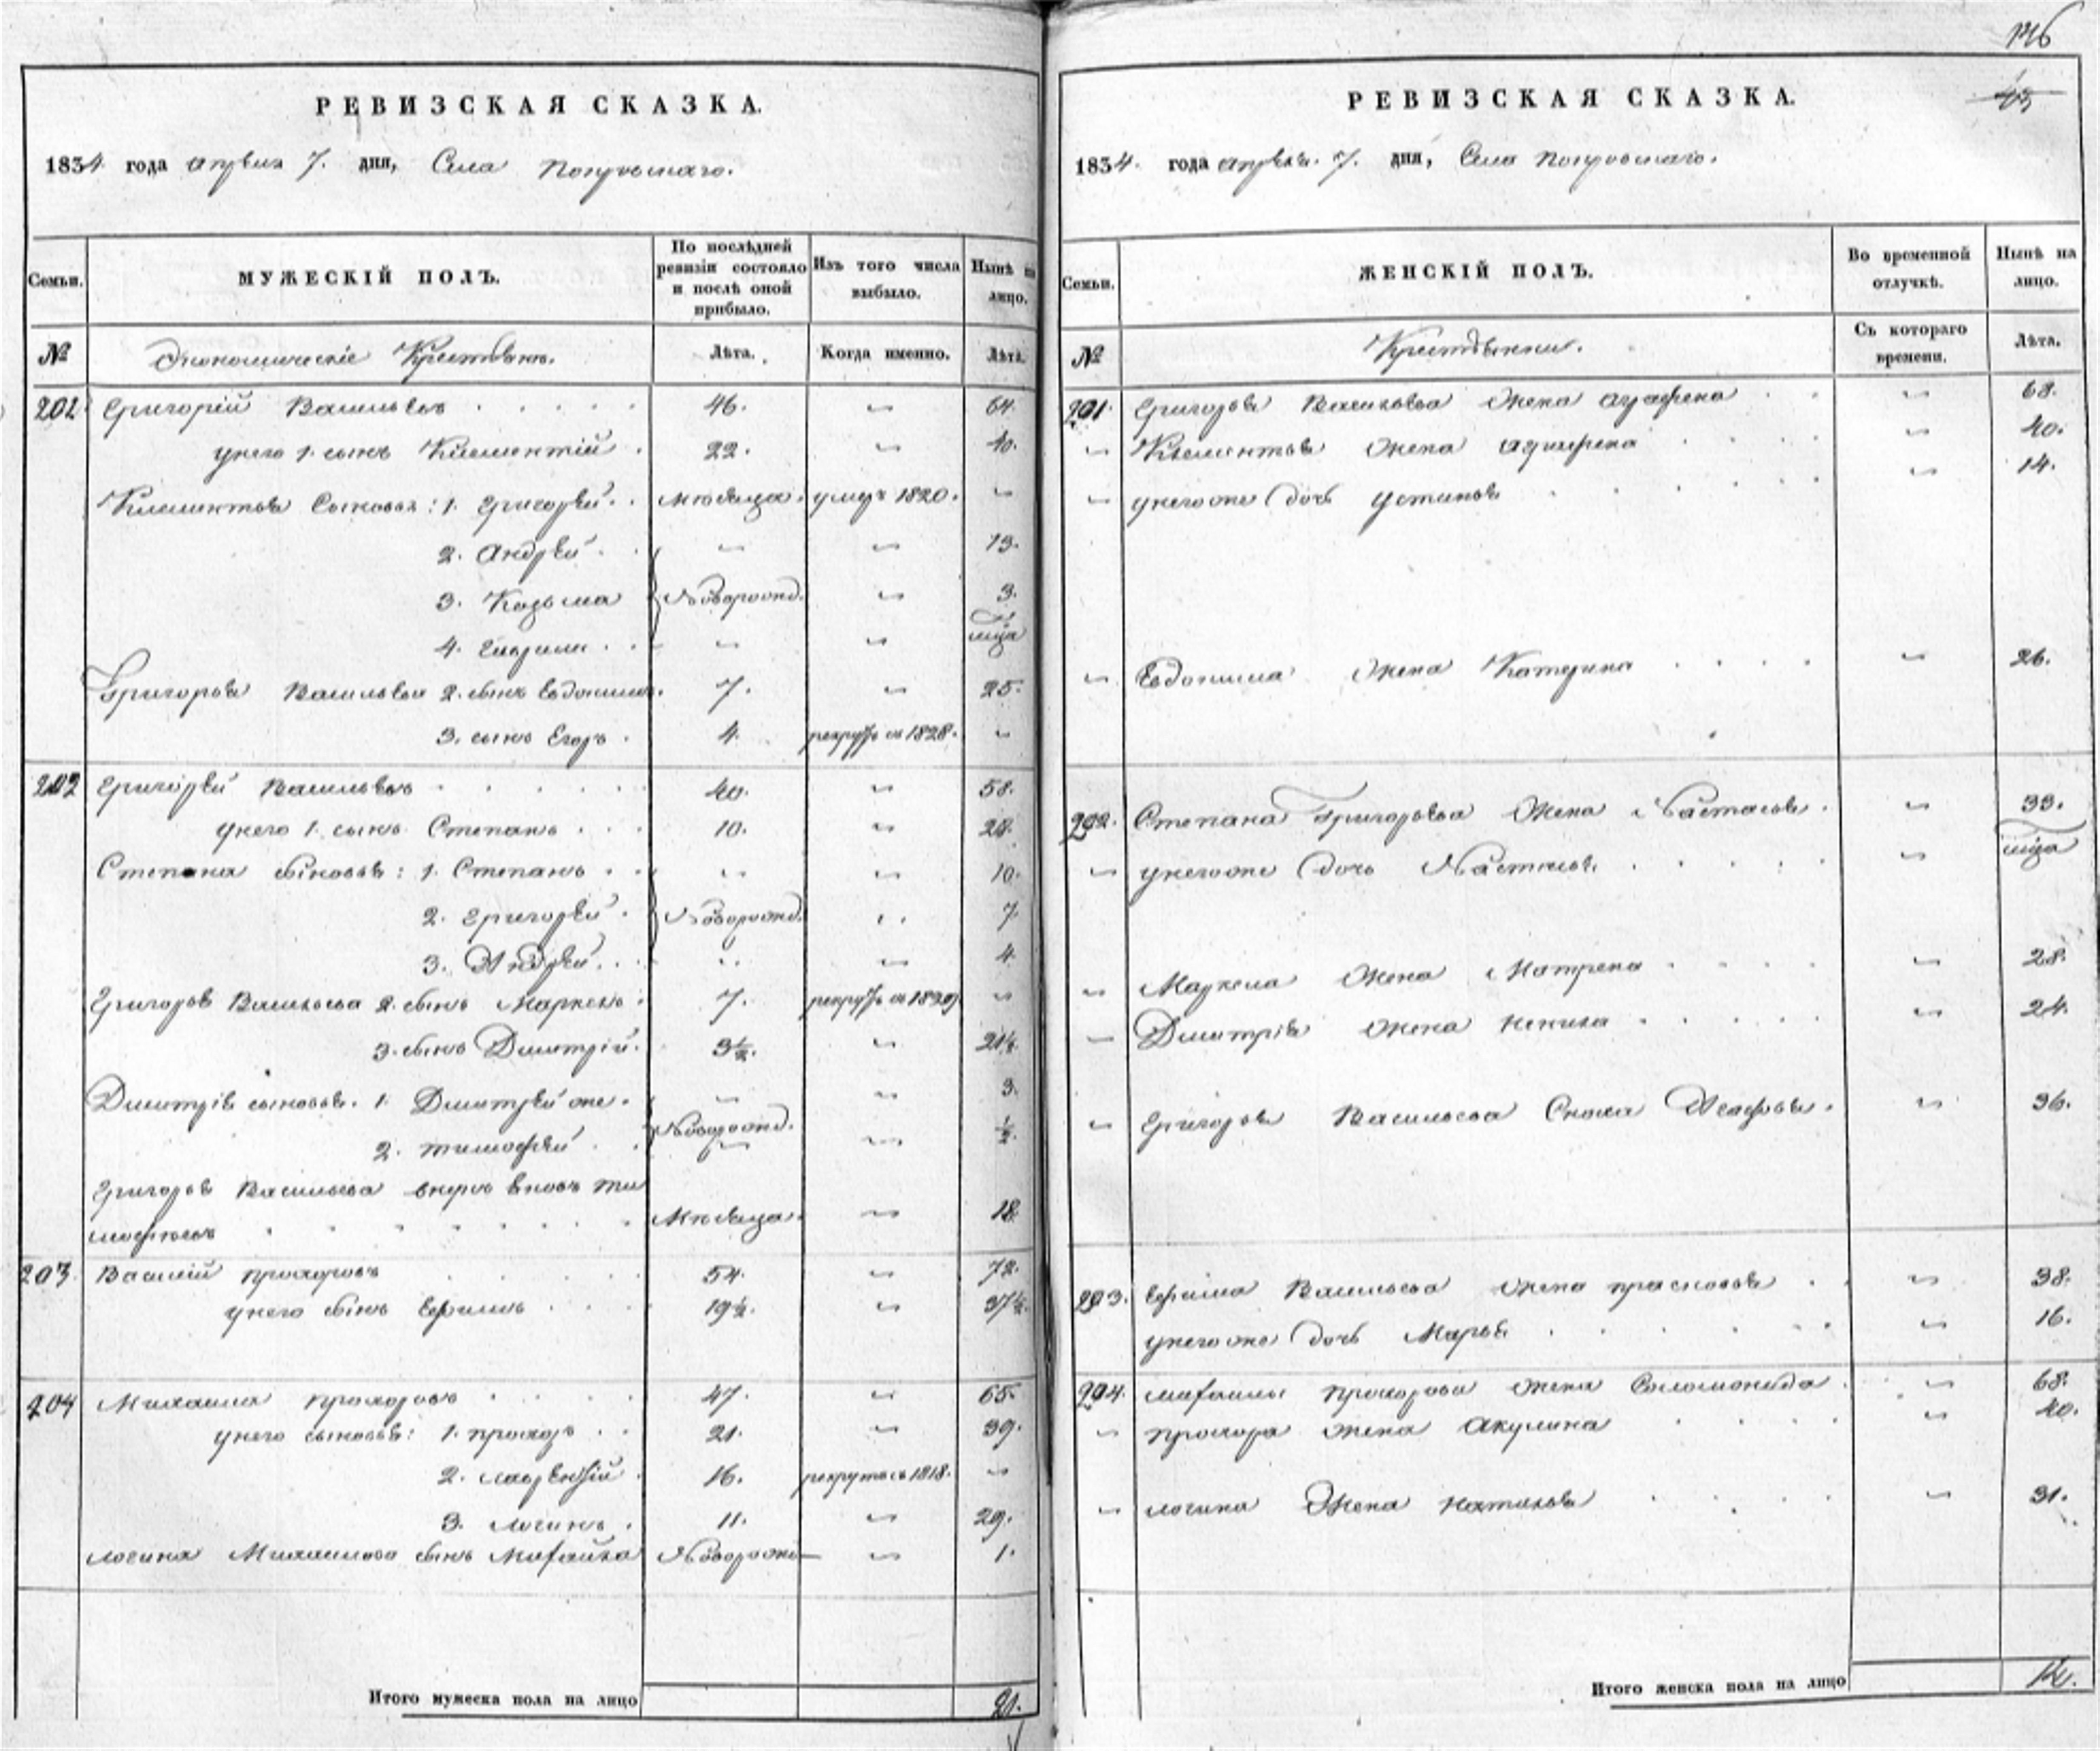 РЕВИЗСКАЯ СКАЗКА.
1834 года апреля 7. дня, Села Покровскаго.
Семьи.
МУЖЕСКІЙ ПОЛЪ.
По послѣдней ревизіи состояло и послѣ оной прибыло.
Изъ того числа выбыло.
Нынѣ на лицо.
№
Экономическіе Крестьяне.
Лѣта.
Когда именно.
Лѣта.
201 Григорій Васильевъ 46. 64.
унего 1. сынъ Климентій 22. 40.
Климентья Сыновья: 1. Григорей. умер 1820.
2. Андрей. 13.
3. Козьма Новорожд. 3.
4.
Григорья Васильева 2. сынъ Евдокимъ. 7. 25.
3. сынъ Егоръ. 4. рекрутъ въ 1828.
202 Григорей Васильевъ 40. 58.
унего 1. сынъ Степанъ 10. 28.
Степана сыновья: 1. Степанъ 10.
2. Григорей. Новорожд. 7.
3. Андрей. 4.
Григорья Васильева 2. сынъ Маркелъ 7. рекрутъ въ
3. сынъ Дмитрій. 3½. 21½
Дмитрія сыновья. 1. Дмитрей же. 3.
2. тимофей Новорожд. ½.
Григорья Васильева внукъ ти
мофеевъ 18.
203 Василій прохоровъ 54. 72.
унего сынъ Ефимъ 19½. 37½.
204 Михаила прохоровъ 47. 65.
унего сыновья: 1. прохоръ 21. 39.
2. лаврентій 16. рекрутъ въ 1818.
3. логинъ. 11. 29.
логина Михаилова сынъ Михайла Новорожд 1.
Итого мужеска пола на лицо 21.
146
43
РЕВИЗСКАЯ СКАЗКА.
1834. года апреля. 7. дня, Села Покровскаго.
Семьи.
ЖЕНСКІЙ ПОЛЪ.
Во временной отлучкѣ.
Нынѣ на лицо.
№
Крестьянки.
Съ котораго времени.
Лѣта.
201. Григорья Васильева Жена аграфена 68.
Климентья Жена аграфена 40.
унегоже дочь устинья 14.
Евдокима Жена Катерина 26.
202. Степана Григорьева Жена Настасья. 33.
унегоже дочь Настасья.
Маркела Жена Матрена 28.
Дмитрія Жена 24.
Григорья Васильева Сноха 36.
203. Ефима Васильева Жена прасковья 38.
унегоже дочь Марья 16.
204. михаилы прохорова Жена Соломонида 68.
прохора Жена Акулина 40.
логина Жена Наталья 31.
Итого женска пола на лицо 12.